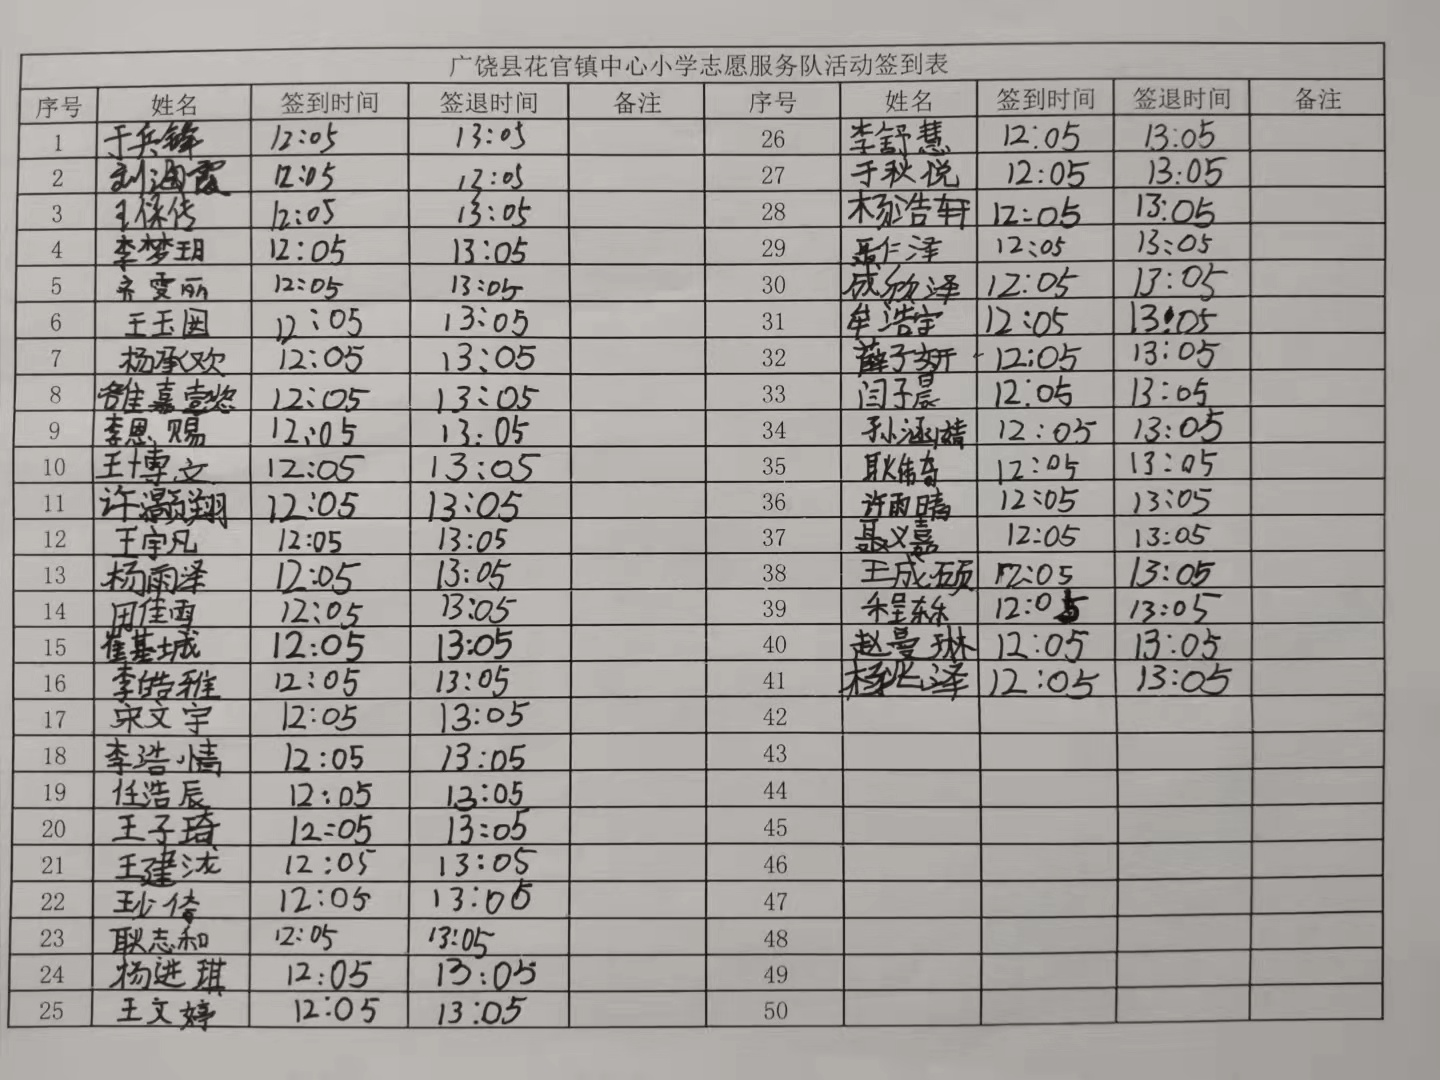 广饶县花官镇中心小学志愿服务队活动签到表
序号 姓名 签到时间 签退时间 备注 序号 姓名 签到时间 签退时间 备注
1 于兵锋 12:05 13:05 26 李舒慧 12:05 13:05
2 刘海霞 12:05 13:05 27 于秋悦 12:05 13:05
3 王保传 12:05 13:05 28 杨浩轩 12:05 13:05
4 李梦玥 12:05 13:05 29 聂仁泽 12:05 13:05
5 齐雯丽 12:05 13:05 30 成欣泽 12:05 13:05
6 王玉国 12:05 13:05 31 牟浩宇 12:05 13:05
7 杨承欢 12:05 13:05 32 薛子妍 12:05 13:05
8 嘉懿 12:05 13:05 33 闫子晨 12:05 13:05
9 李恩赐 12:05 13:05 34 孙涵婧 12:05 13:05
10 王博文 12:05 13:05 35 耿伟奇 12:05 13:05
11 许灏翔 12:05 13:05 36 许雨晴 12:05 13:05
12 王宇凡 12:05 13:05 37 聂义嘉 12:05 13:05
13 杨雨泽 12:05 13:05 38 王成硕 12:05 13:05
14 周佳雪 12:05 13:05 39 程 12:05 13:05
15 崔基城 12:05 13:05 40 赵曼琳 12:05 13:05
16 李皓雅 12:05 13:05 41 杨 泽 12:05 13:05
17 宋文宇 12:05 13:05 42
18 李浩 12:05 13:05 43
19 任浩辰 12:05 13:05 44
20 王子琦 12:05 13:05 45
21 王建泷 12:05 13:05 46
22 王 倚 12:05 13:05 47
23 耿志和 12:05 13:05 48
24 杨进琪 12:05 13:05 49
25 王文婷 12:05 13:05 50